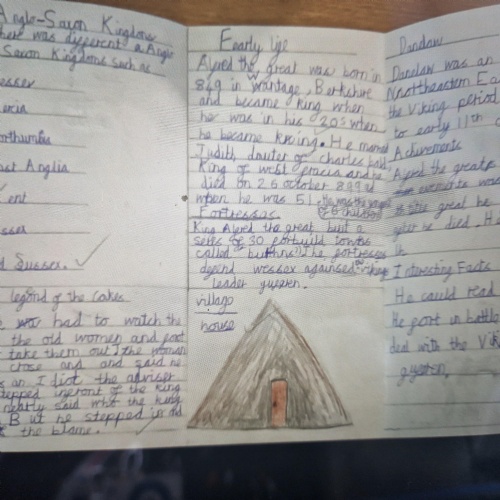 Anglo-Saxon Kingdoms
here was different a Anglo
Saxon Kingdoms such as
essex
ercia
orthumbia
ast Anglia
ent
ssex
d Sussex.
legend of the cakes
had to watch the
the old women and
take them out. the woman
close and and said he
an I diot. the adviser
stepped infront of the king
neatly said who the king
But he stepped in and
the blame.
Eearly life
Alfred the great was born in
849 in wantage, Berkshire
and became king when
he was in his 20s when
he became king. He married
Judith, dauter of charles bald
King of west
died on 26 october 899
when he was 51. He was the
of 6 children
Fortressas
King Alfred the great buit a
seres of 30
called burhns. The fortresses
defend wessex againsed
leader
village
house
Danelaw
Danelaw was an
Nnotheastern Ea
the Viking period
to early 11th c
Achivements
Alfred the greats
was
great he
after he died. H
Interesting Facts
He could read
He in battle
deal with the Vik